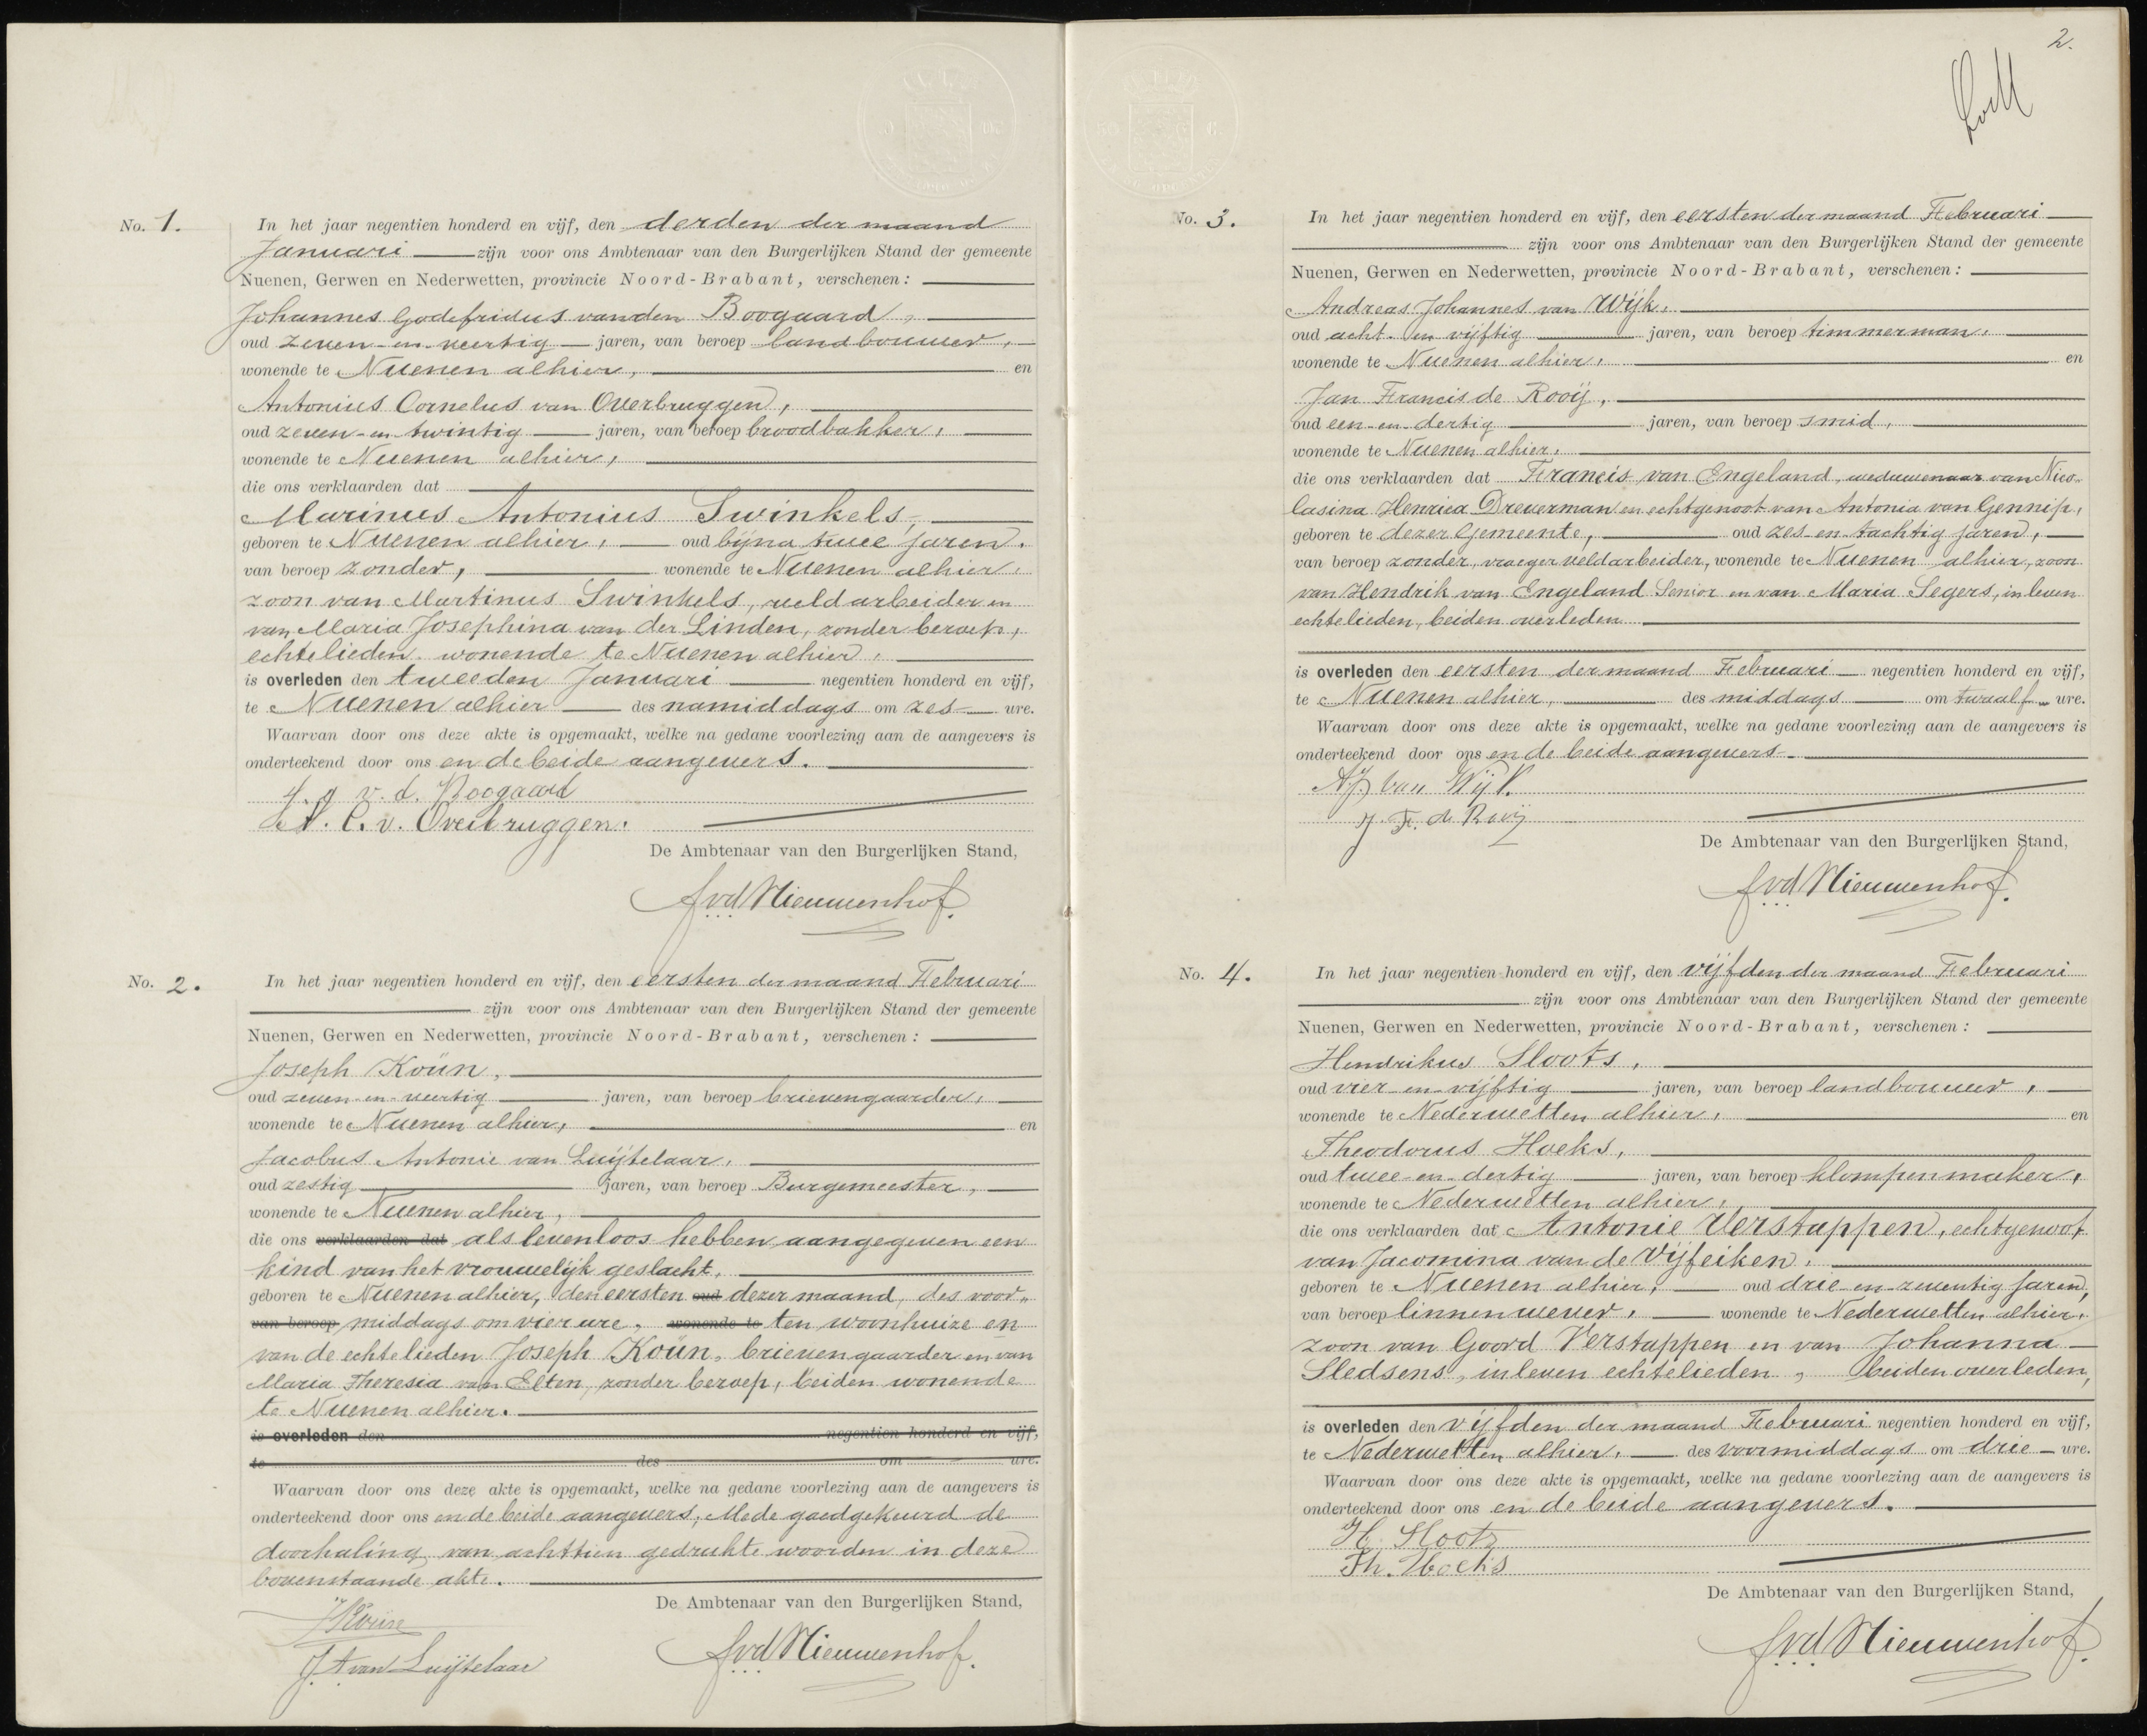 No. 1.
In het jaar negentien honderd en vijf, den derden der maand
Januari zijn voor ons Ambtenaar van den Burgerlijken Stand der gemeente
Nuenen, Gerwen en Nederwetten, provincie Noord-Brabant, verschenen:
Johannes Godefridus van den Boogaard,
oud zeven-en-veertig jaren, van beroep landbouwer,
wonende te Nuenen alhier, en
Antonius Cornelus van Overbruggen,
oud zeven-en-twintig jaren, van beroep broodbakker,
wonende te Nuenen alhier,
die ons verklaarden dat
Marinus Antonius Swinkels,
geboren te Nuenen alhier, oud bijna twee jaren.
van beroep zonder, wonende te Nuenen alhier,
zoon van Martinus Swinkels, veldarbeider en
van Maria Josephina van der Linden, zonder beroep,
echtelieden, wonende te Nuenen alhier,
is overleden den tweeden Januari negentien honderd en vijf,
te Nuenen alhier des namiddags om zes ure.
Waarvan door ons deze akte is opgemaakt, welke na gedane voorlezing aan de aangevers is
onderteekend door ons en de beide aangevers.
J. G v. d. Boogaard
A. C. v. Overbruggen.
De Ambtenaar van den Burgerlijken Stand,
Avd Nieuwenhof.
No. 2.
In het jaar negentien honderd en vijf, den eersten der maand Februari
zijn voor ons Ambtenaar van den Burgerlijken Stand der gemeente
Nuenen, Gerwen en Nederwetten, provincie Noord-Brabant, verschenen:
Joseph Koün,
oud zeven-en-veertig jaren, van beroep brievengaarder,
wonende te Nuenen alhier, en
Jacobus Antonie van Luijtelaar,
oud zestig jaren, van beroep Burgemeester,
wonende te Nuenen alhier,
die ons verklaarden dat als levenloos hebben aangegeven een
kind van het vrouwelijk geslacht,
geboren te Nuenen alhier, den eersten oud dezer maand, des voor„
van beroep middags om vier ure, wonende te ten woonhuize en
van de echtelieden Joseph Koün, brievengaarder en van
Maria Theresia van Elten, zonder beroep, beiden wonende
te Nuenen alhier.
is overleden den negentien honderd en vijf,
te des om ure.
Waarvan door ons deze akte is opgemaakt, welke na gedane voorlezing aan de aangevers is
onderteekend door ons en de beide aangevers, Mede goedgekeurd de
doorhaling van achttien gedrukte woorden in deze
bovenstaande akte.
De Ambtenaar van den Burgerlijken Stand,
JKoün
J A van Luijtelaar
Avd Nieuwenhof.
2.
No. 3.
In het jaar negentien honderd en vijf, den eersten der maand Februari
zijn voor ons Ambtenaar van den Burgerlijken Stand der gemeente
Nuenen, Gerwen en Nederwetten, provincie Noord-Brabant, verschenen:
Andreas Johannes van Wijk,
oud acht-en vijftig jaren, van beroep timmerman,
wonende te Nuenen alhier, en
Jan Francis de Rooij,
oud een-en-dertig jaren, van beroep smid,
wonende te Nuenen alhier,
die ons verklaarden dat Francis van Engeland, weduwenaar van Nico„
lasina Henrica Dreverman en echtgenoot van Antonia van Gennip,
geboren te dezer Gemeente, oud zes-en-tachtig jaren,
van beroep zonder, vroeger veldarbeider, wonende te Nuenen alhier, zoon
van Hendrik van Engeland Senior en van Maria Segers, in leven
echtelieden, beiden overleden
is overleden den eersten der maand Februari negentien honderd en vijf,
te Nuenen alhier, des middags om twaalf ure.
Waarvan door ons deze akte is opgemaakt, welke na gedane voorlezing aan de aangevers is
onderteekend door ons en de beide aangevers.
AJ van Wijk.
J. F. de Rooij
De Ambtenaar van den Burgerlijken Stand,
Avd Nieuwenhof.
No. 4.
In het jaar negentien honderd en vijf, den vijfden der maand Februari
zijn voor ons Ambtenaar van den Burgerlijken Stand der gemeente
Nuenen, Gerwen en Nederwetten, provincie Noord-Brabant, verschenen:
Hendrikus Sloots,
oud vier-en-vijftig jaren, van beroep landbouwer,
wonende te Nederwetten alhier, en
Theodorus Hoeks,
oud twee-en-dertig jaren, van beroep klompenmaker,
wonende te Nederwetten alhier,
die ons verklaarden dat Antonie Verstappen, echtgenoot
van Jacomina van de Vijfeiken,
geboren te Nuenen alhier, oud drie-en-zeventig jaren,
van beroep linnenwever, wonende te Nederwetten alhier,
zoon van Goord Verstappen en van Johanna
Sledsens, in leven echtelieden, beiden overleden,
is overleden den vijfden der maand Februari negentien honderd en vijf,
te Nederwetten alhier, des voormiddags om drie ure.
Waarvan door ons deze akte is opgemaakt, welke na gedane voorlezing aan de aangevers is
onderteekend door ons en de beide aangevers.
H. Sloots
Th. Hoeks
De Ambtenaar van den Burgerlijken Stand,
Avd Nieuwenhof.